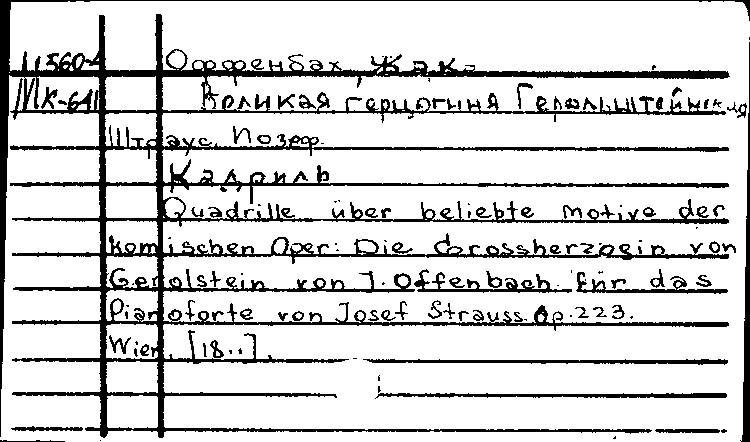 Ш 560-4 Оффенбах, Жак.
МК-641 Великая герцогиня Герольштейнская
Штраус, Иозеф.
Кадриль
Quadrille über beliebte motive der
komischen Oper: Die Grossherzogin von
Gerolstein von J. Offenbach für das
Pianoforte von Josef Strauss. Op. 223.
Wien, [18..].